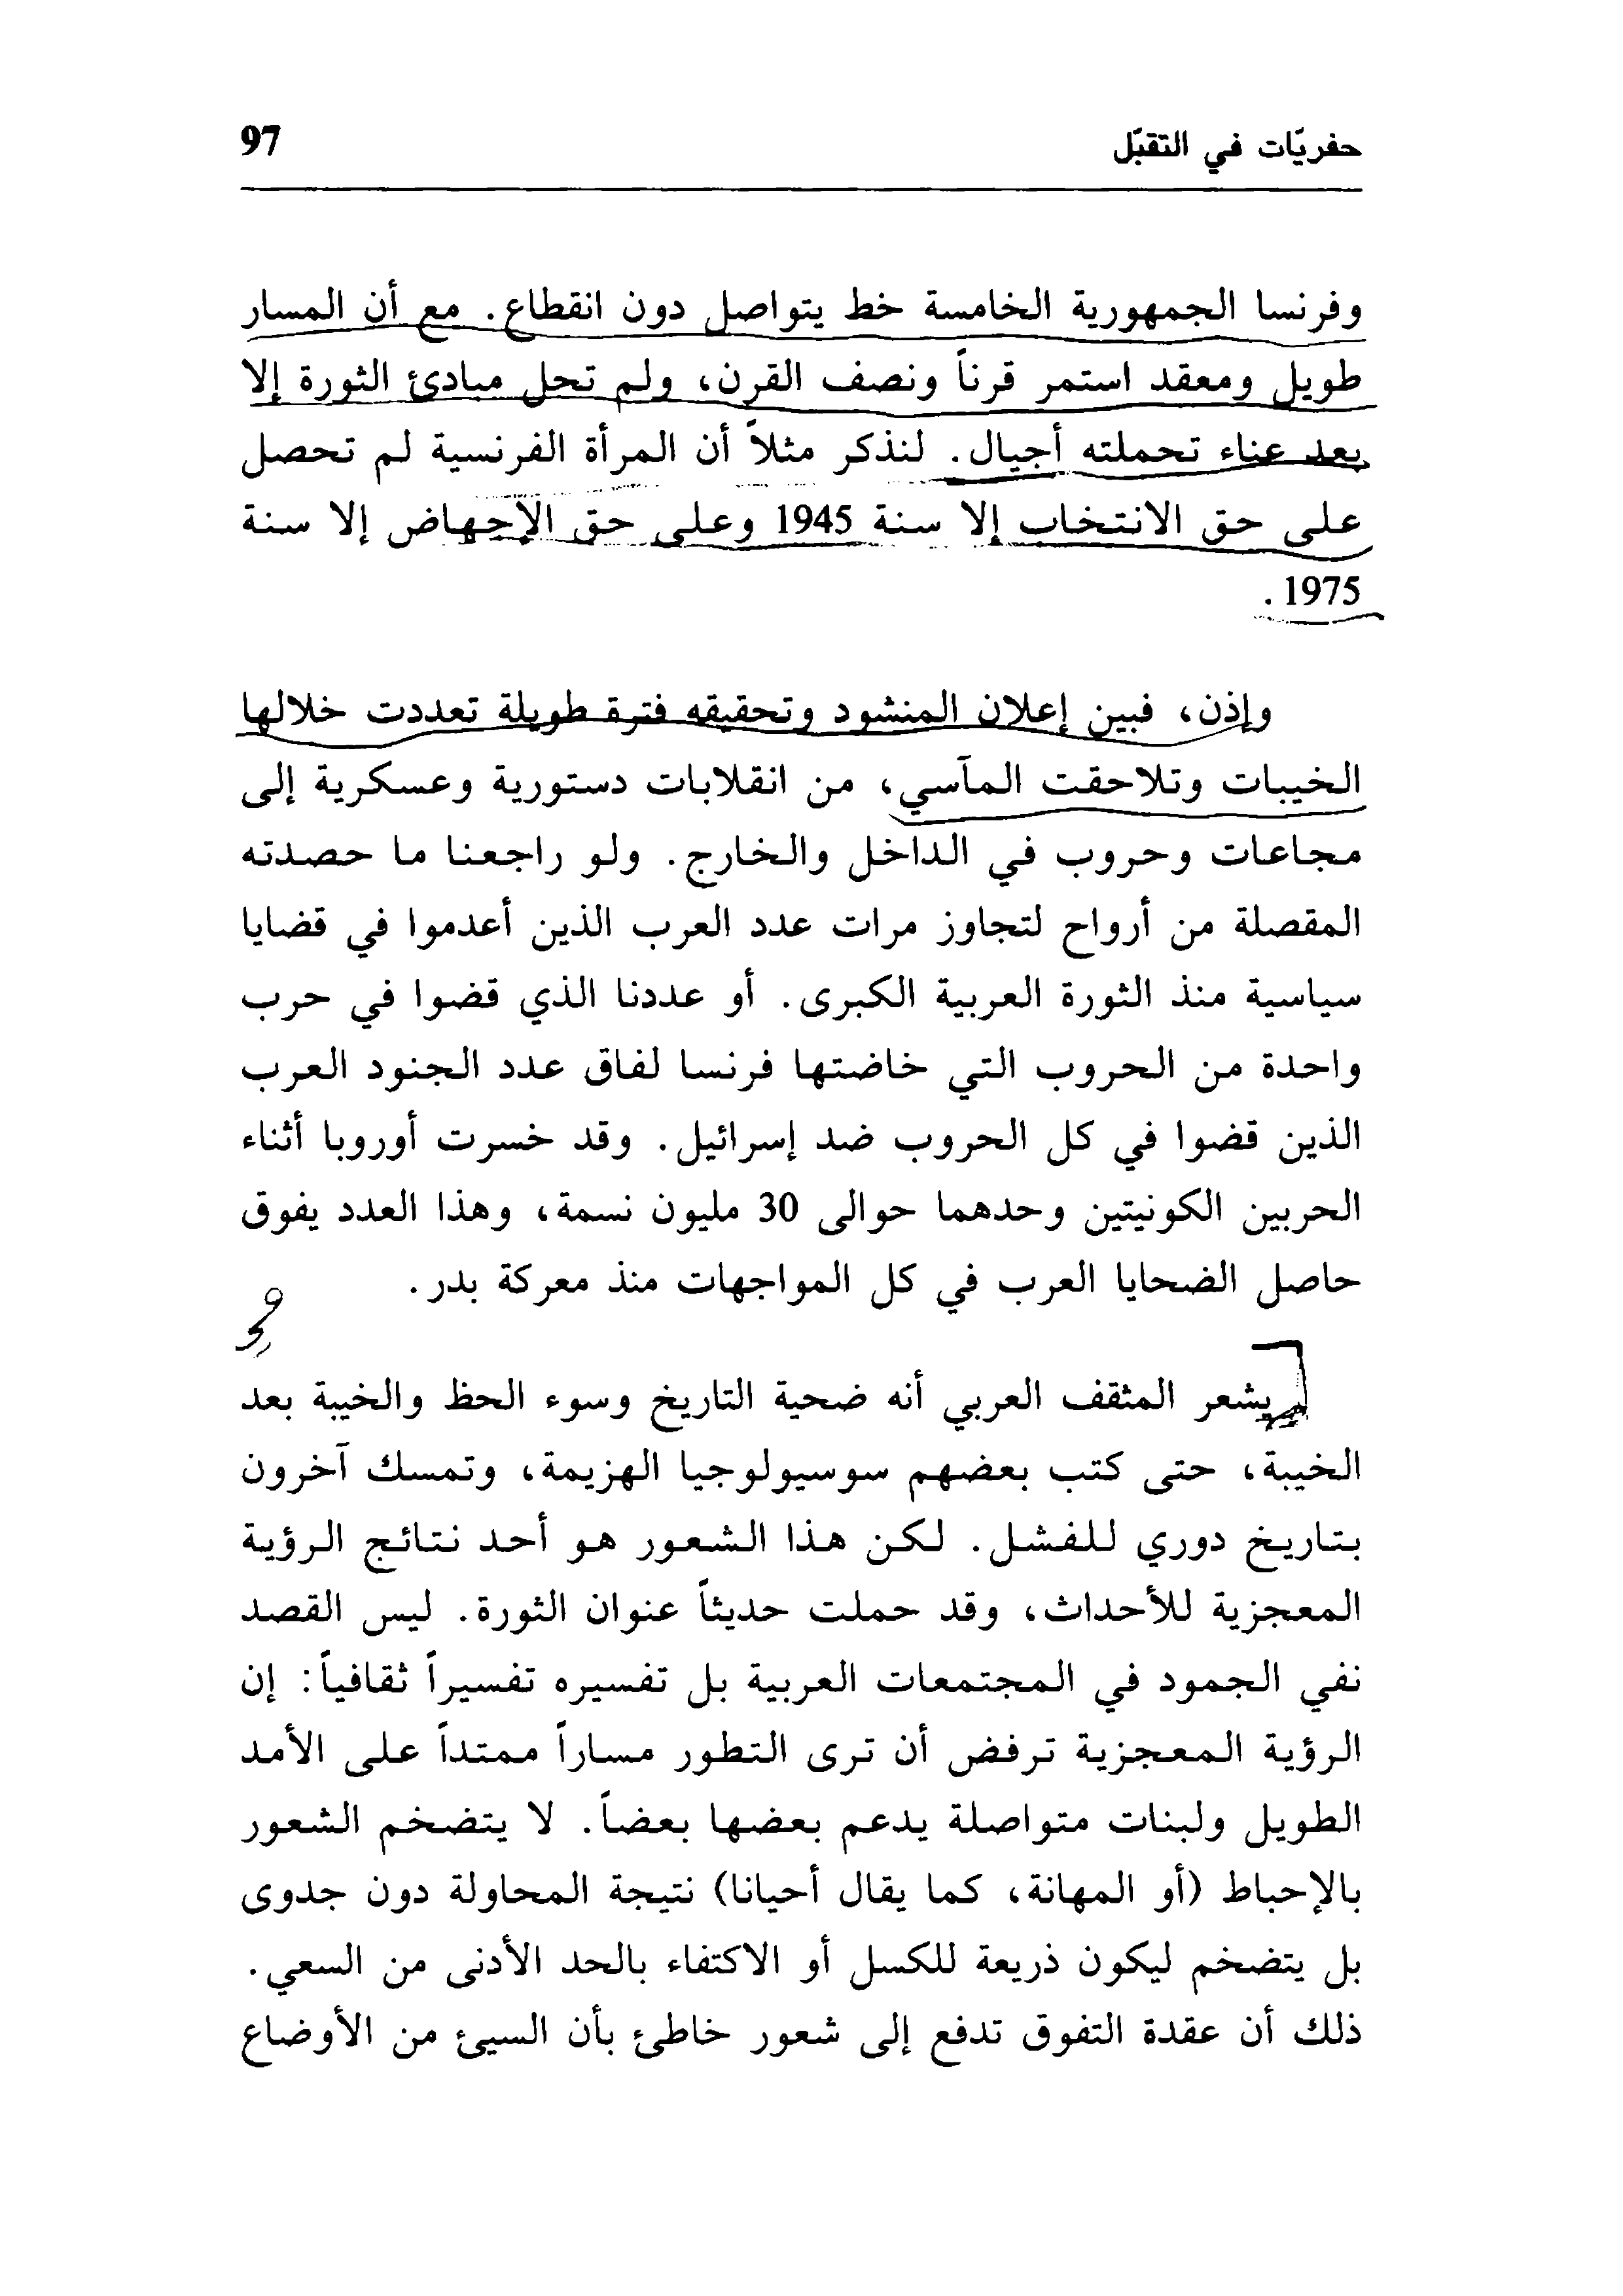 حفريّات في التقبّل 97
وفرنسا الجمهورية الخامسة خط يتواصل دون انقطاع. مع أن المسار
طويل ومعقد استمر قرناً ونصف القرن، ولم تحل مبادئ الثورة إلا
بعد عناء تحملته أجيال. لنذكر مثلاً أن المرأة الفرنسية لم تحصل
على حق الانتخاب إلا سنة 1945 وعلى حق الإجهاض إلا سنة
1975.
وإذن، فبين إعلان المنشود وتحقيقه فترة طويلة تعددت خلالها
الخيبات وتلاحقت المآسي، من انقلابات دستورية وعسكرية إلى
مجاعات وحروب في الداخل والخارج. ولو راجعنا ما حصدته
المقصلة من أرواح لتجاوز مرات عدد العرب الذين أعدموا في قضايا
سياسية منذ الثورة العربية الكبرى. أو عددنا الذي قضوا في حرب
واحدة من الحروب التي خاضتها فرنسا لفاق عدد الجنود العرب
الذين قضوا في كل الحروب ضد إسرائيل. وقد خسرت أوروبا أثناء
الحربين الكونيتين وحدهما حوالى 30 مليون نسمة، وهذا العدد يفوق
حاصل الضحايا العرب في كل المواجهات منذ معركة بدر.
يشعر المثقف العربي أنه ضحية التاريخ وسوء الحظ والخيبة بعد
الخيبة، حتى كتب بعضهم سوسيولوجيا الهزيمة، وتمسك آخرون
بتاريخ دوري للفشل. لكن هذا الشعور هو أحد نتائج الرؤية
المعجزية للأحداث، وقد حملت حديثاً عنوان الثورة. ليس القصد
نفي الجمود في المجتمعات العربية بل تفسيره تفسيراً ثقافياً: إن
الرؤية المعجزية ترفض أن ترى التطور مساراً ممتداً على الأمد
الطويل ولبنات متواصلة يدعم بعضها بعضاً. لا يتضخم الشعور
بالإحباط (أو المهانة، كما يقال أحيانا) نتيجة المحاولة دون جدوى
بل يتضخم ليكون ذريعة للكسل أو الاكتفاء بالحد الأدنى من السعي.
ذلك أن عقدة التفوق تدفع إلى شعور خاطئ بأن السيئ من الأوضاع